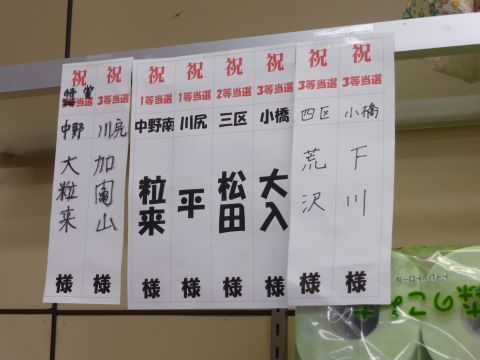 祝
特賞
中野
大粒来
様
祝
3等当選
川尻
様
祝
1等当選
中野南
粒来
様
祝
1等当選
川尻
平
様
祝
2等当選
三区
松田
様
祝
3等当選
小橋
大入
様
祝
3等当選
四区
荒沢
様
祝
3等当選
小橋
下川
様
トイレットロール